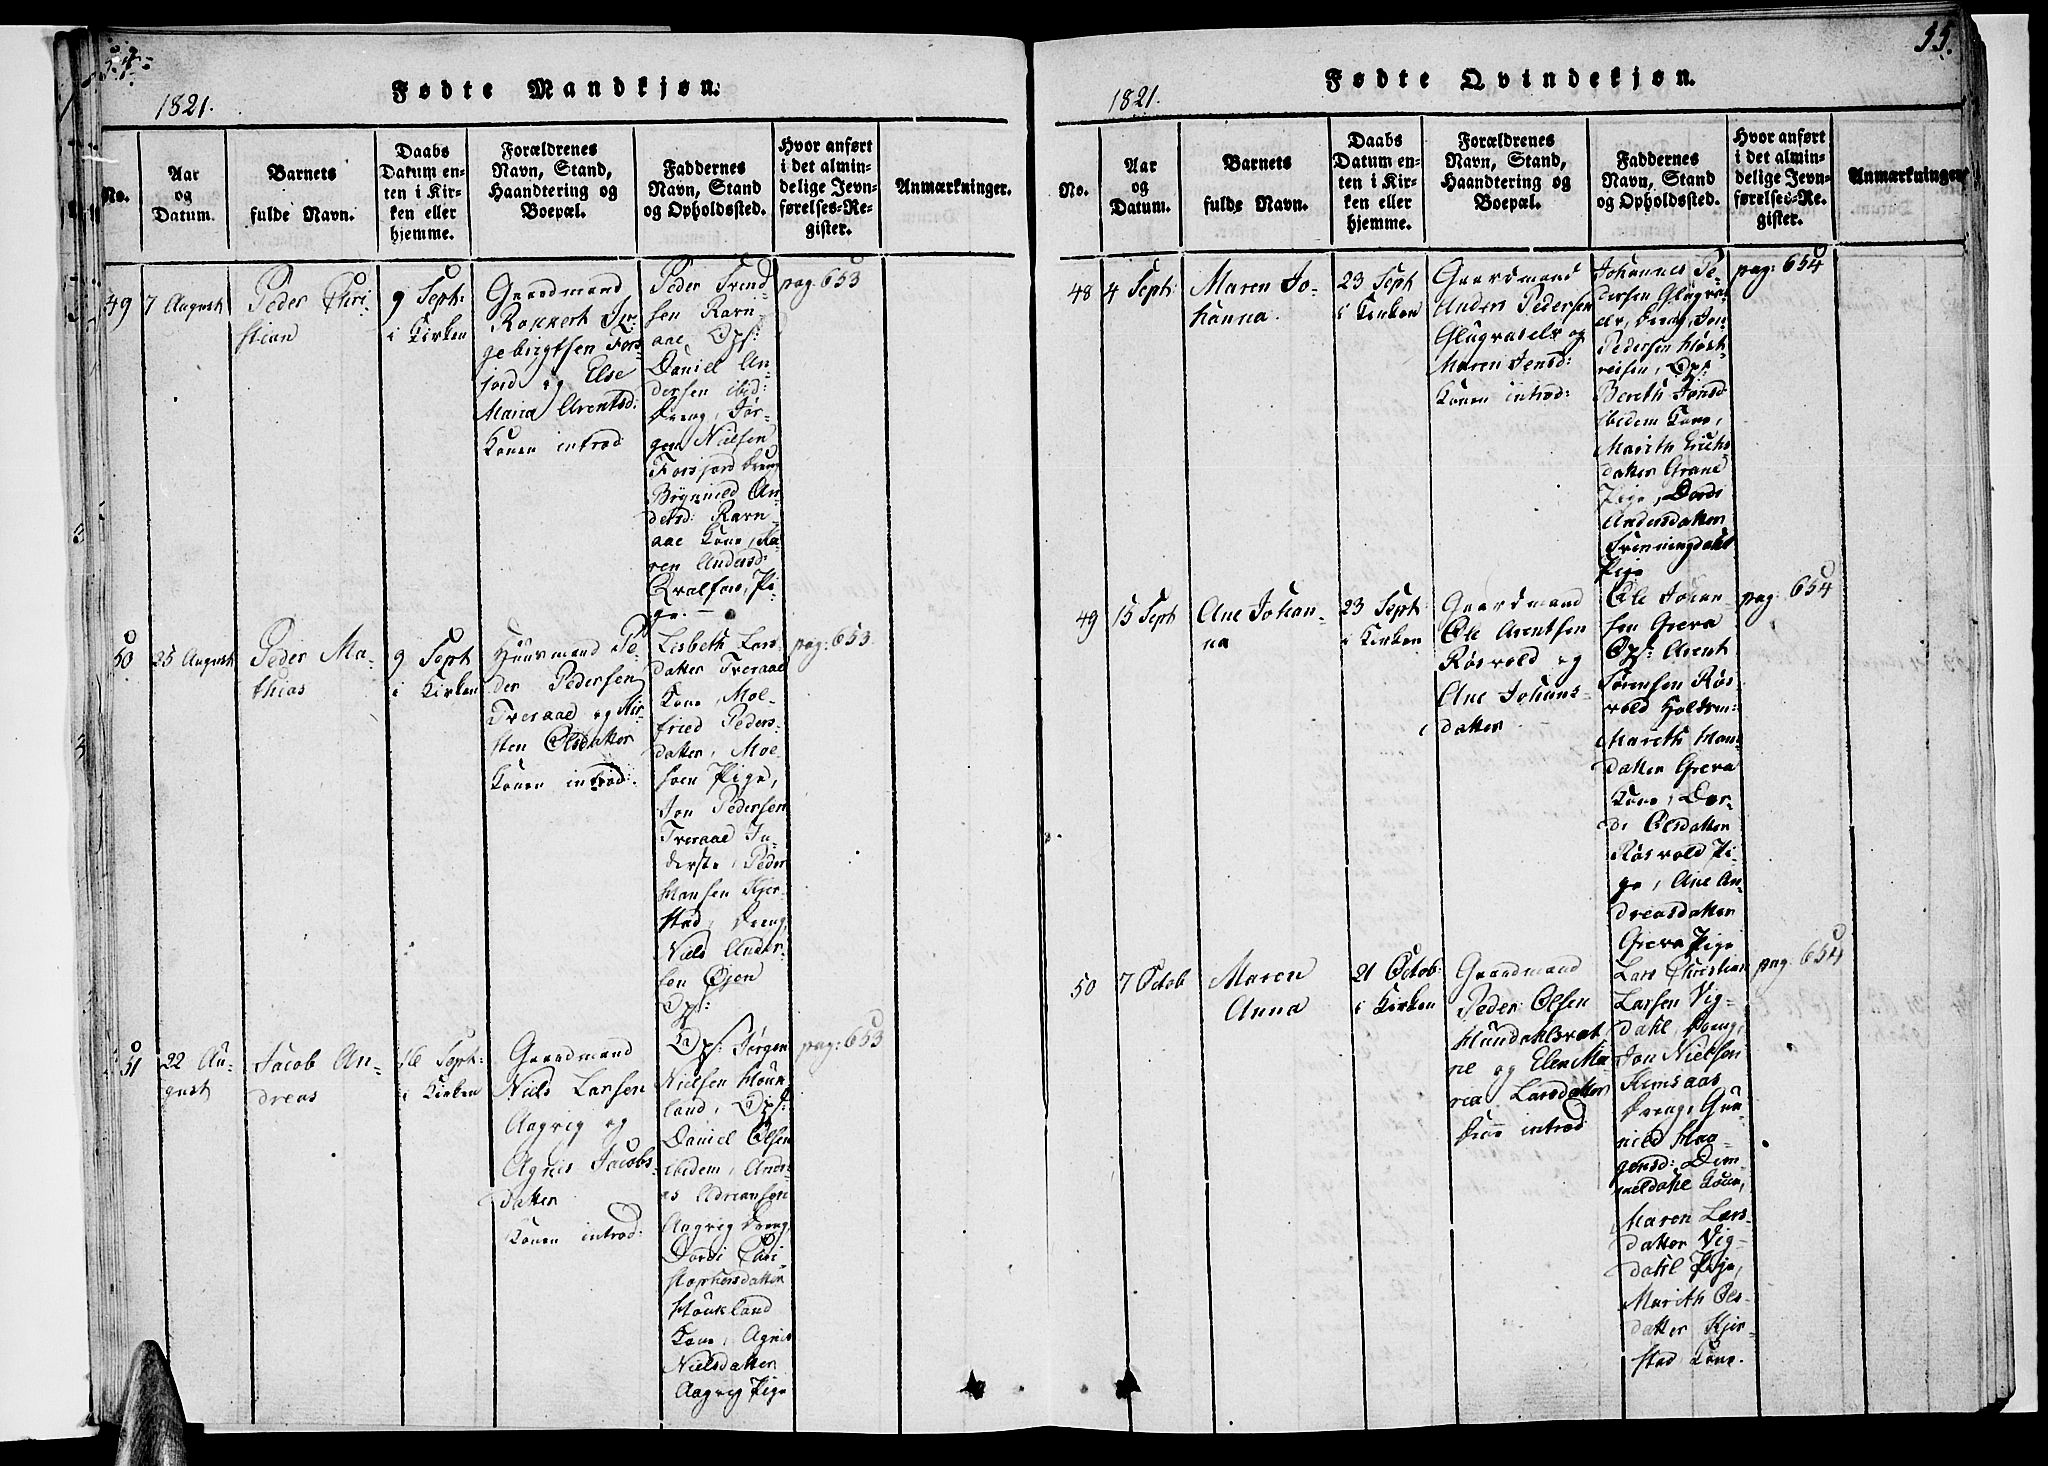 54.
Fødte Mandkjøn.
1821.
No.
Aar
og
Datum.
Barnets
fulde Navn.
Daabs
Datum en-
ten i Kir-
ken eller
hjemme.
Forældrenes
Navn, Stand,
Haandtering og
Boepæl.
Faddernes
Navn, Stand
og Opholdssted.
Hvor anført
i det almin-
delige Jevn-
førelses-Re-
gister.
Anmærkninger.
49
7 August
Peder Chri
stian
9 Sept:
i Kirken
Gaardmand
Rokkert In-
gebrigtsen Fors-
jord og Else
Maria Arentsd:
Konen introd
Peder Svend-
sen Ravn-
aae, Ops:
Daniel An-
dersen ibid:
Dreng, Jør-
gen Nielsen
Forsjord Dreng
Brynild An-
dersd: Ravn-
aae Kone, Ka-
ren Andersd:
Qvalfors, Pi-
ge. —
pag: 653
50
25 August
Peder Ma-
thias
9 Sept
i Kirken
Huusmand Pe-
der Pedersen
Tveraae og Kir-
sten Olsdatter
Konen introd:
Lisbeth Lars-
datter Tveraae
Kone, Mol-
fried Peders-
datter, Moe-
soen Pige,
Jon Pedersen
Tveraae In-
derste, Peder
Hansen Kjer-
stad, Dreng,
Niels Ander-
sen Øjen
Ops:
pag: 653.
51
22 Au-
gust
Jacob An-
dreas
16 Sept:
i Kirken
Gaardmand
Niels Larsen
Aagvig og
Agnis Jacobs-
datter
Konen introd:
Ops: Jørgen
Nielsen Houk-
land, Ops:
Daniel Olsen
ibidem, Andre-
as Adriansen
Aagvig Dreng,
Dordi Chri-
stophersdatter
Houkland
Kone, Agnis
Nielsdatter
Aagvig Pige
pag: 653
55.
Fødte Qvindekjøn.
1821.
No.
Aar
og
Datum.
Barnets
fulde Navn.
Daabs
Datum en-
ten i Kir-
ken eller
hjemme.
Forældrenes
Navn, Stand,
Haandtering og
Boepæl.
Faddernes
Navn, Stand
og Opholdssted.
Hvor anført
i det almin-
delige Jevn-
førelses-Re-
gister.
Anmærkninger
48
4 Sept:
Maren Jo-
hanna.
23 Sept
i Kirken
Gaardmand
Anders Pedersen
Glugvaselv og
Maren Jensd:
Konen introd:
Johannes Pe-
dersen Glugvas
elv, Dreng, Jon
Pedersen Høst-
reisen, Ops:
Bereth Jonsd
ibidem Kone,
Marith Erichs
datter Grane
Pige, Dordi
Andersdatter
Svenningdahl
Pige
pag: 654
49
15 Sept
Ane Johan-
na
23 Sept:
i Kirken
Gaardmand
Ole Arentsen
Røsvold og
Ane Johans-
datter
Ole Johan-
sen Greva
Ops: Arent
Sørensen Røs-
vold Holdsm:
Mareth Hans
datter Greva
Kone, Dor-
di Olsdatter
Røsvold Pi-
ge, Ane An-
dreasdatter
Greva Pige
pag: 654
50
7 Octob
Maren
Anna
21 Octob:
i Kirken
Gaardmand
Peder Olsen
Hundahlsvat
ne og Elen Ma
ria Larsdatter
introd
Lars Christian
Larsen Vig-
dahl, Dreng,
Jon Nielsen
Remsaas
Dreng, Gun-
nild Haa-
gensd: Dem-
meldahl Kone,
Maren Lars-
datter Vig-
dahl Pige,
Marith Ols-
datter Kjer-
stad Kone.
pag: 654